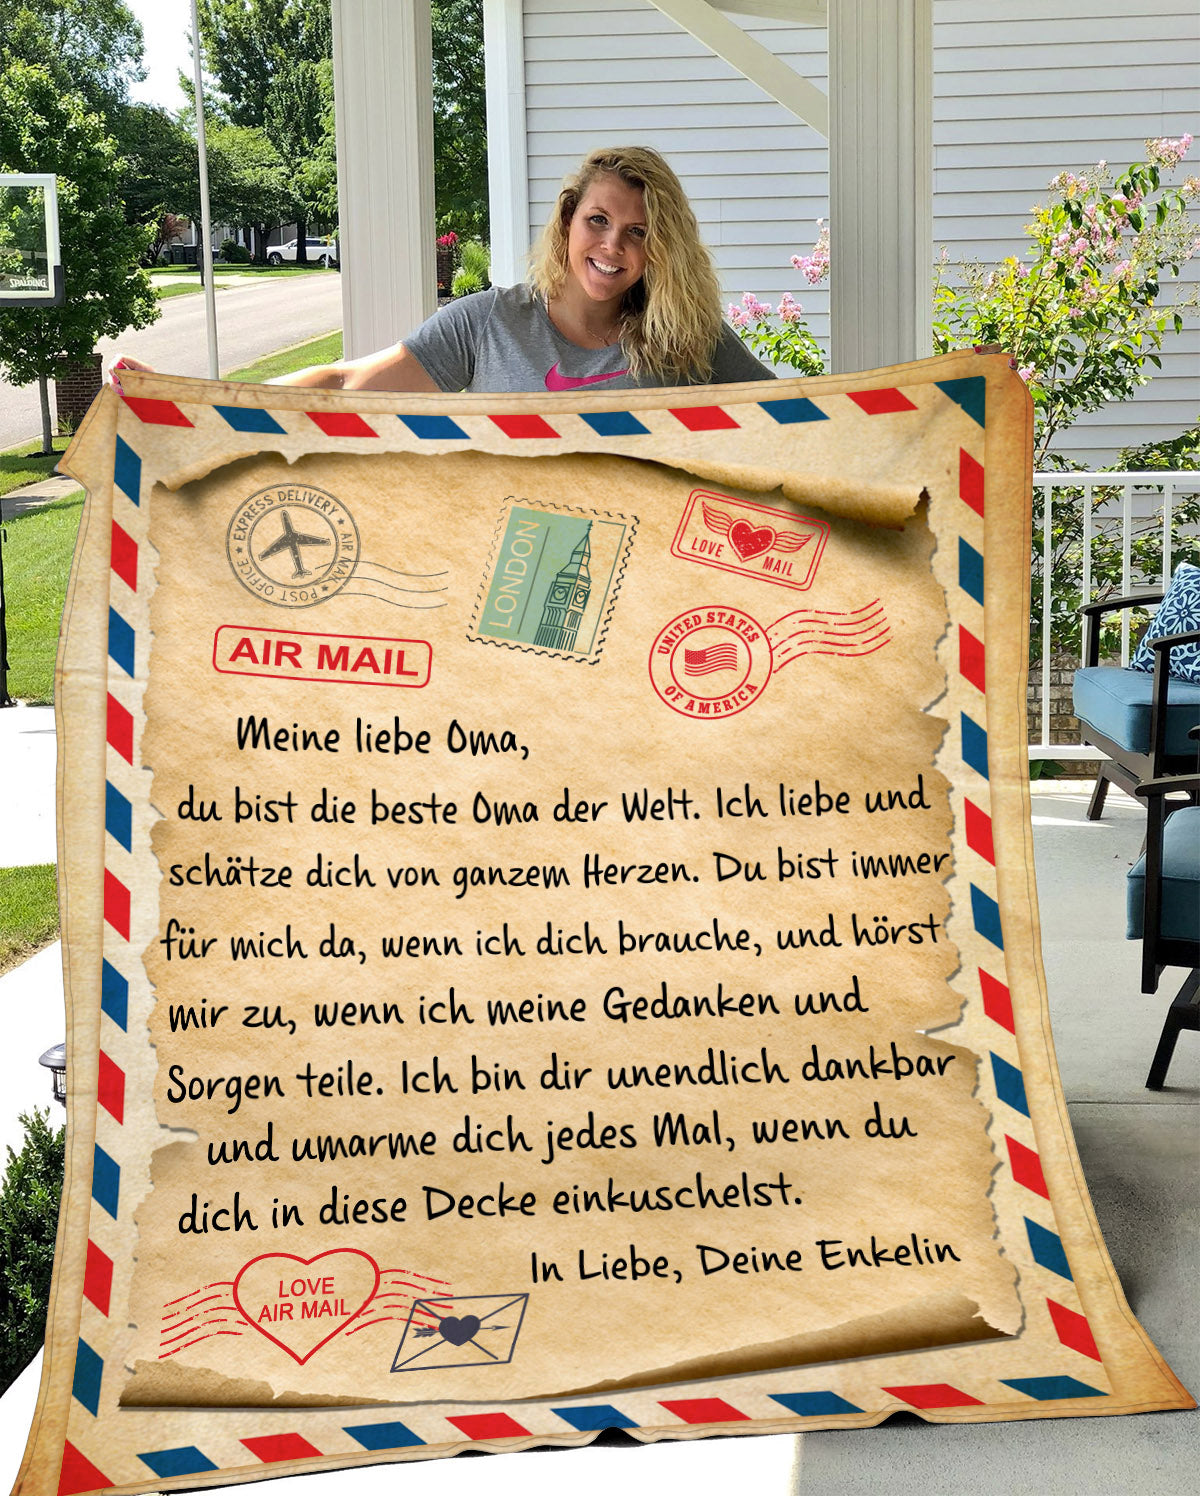 SPALDING
EXPRESS DELIVERY
AIR MAIL
POST OFFICE
LONDON
LOVE MAIL
AIR MAIL
UNITED STATES
OF AMERICA
Meine liebe Oma,
du bist die beste Oma der Welt. Ich liebe und
schätze dich von ganzem Herzen. Du bist immer
für mich da, wenn ich dich brauche, und hörst
mir zu, wenn ich meine Gedanken und
Sorgen teile. Ich bin dir unendlich dankbar
und umarme dich jedes Mal, wenn du
dich in diese Decke einkuschelst.
In Liebe, Deine Enkelin
LOVE
AIR MAIL